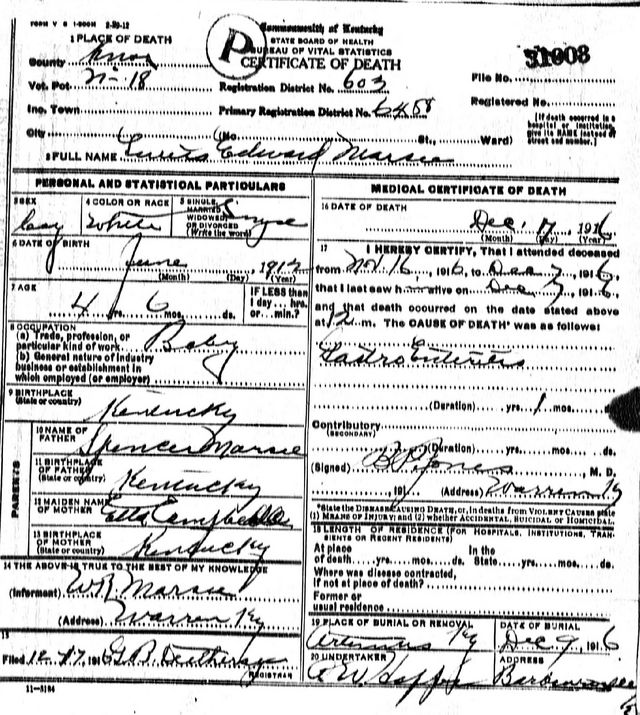 FORM V S 1-200M 2-20-12
Commonwealth of Kentucky
STATE BOARD OF HEALTH
BUREAU OF VITAL STATISTICS
CERTIFICATE OF DEATH
P
31003
1 PLACE OF DEATH
County Knox
Vot. Pot. 18
Registration District No. 603
File No.
Inc. Town
Primary Registration District No. 6458
Registered No.
City (No. St., Ward)
[If death occurred in a hospital or institution, give its NAME instead of street and number.]
2 FULL NAME Edward Marsee
PERSONAL AND STATISTICAL PARTICULARS
3 SEX boy
4 COLOR OR RACE White
5 SINGLE, MARRIED, WIDOWED OR DIVORCED (Write the word) Single
6 DATE OF BIRTH
June, 1912
(Month) (Day) (Year)
7 AGE
4 yrs. 6 mos. ds.
IF LESS than 1 day... hrs. or... min.?
8 OCCUPATION
(a) Trade, profession, or particular kind of work Baby
(b) General nature of industry business or establishment in which employed (or employer)
9 BIRTHPLACE
(State or country) Kentucky
PARENTS
10 NAME OF FATHER Spencer Marsee
11 BIRTHPLACE OF FATHER
(State or country) Kentucky
12 MAIDEN NAME OF MOTHER Etta Campbell
13 BIRTHPLACE OF MOTHER
(State or country) Kentucky
14 THE ABOVE IS TRUE TO THE BEST OF MY KNOWLEDGE
(Informant) W R Marsee
(Address) Warren Ky
15
Filed 12-17, 1916 G. B.
REGISTRAR
11-3184
MEDICAL CERTIFICATE OF DEATH
16 DATE OF DEATH
Dec. 7, 1916
(Month) (Day) (Year)
17 I HEREBY CERTIFY, That I attended deceased
from Nov. 16, 1916, to Dec 7, 1916,
that I last saw h alive on Dec 7, 1916,
and that death occurred on the date stated above
at 12 m. The CAUSE OF DEATH* was as follows:
Gastro Enteritis
(Duration) yrs. 1 mos. ds.
Contributory
(SECONDARY)
(Duration) yrs. mos. ds.
(Signed) Jones, M. D.
, 191 (Address) Warren Ky
*State the DISEASE CAUSING DEATH, or, in deaths from VIOLENT CAUSES state (1) MEANS OF INJURY; and (2) whether ACCIDENTAL, SUICIDAL OR HOMICIDAL.
18 LENGTH OF RESIDENCE (FOR HOSPITALS, INSTITUTIONS, TRANSIENTS OR RECENT RESIDENTS)
At place of death yrs. mos. ds. In the State yrs. mos. ds.
Where was disease contracted, if not at place of death?
Former or usual residence
19 PLACE OF BURIAL OR REMOVAL
Artemus Ky
DATE OF BURIAL
Dec 9, 1916
20 UNDERTAKER
ADDRESS
Barbourville